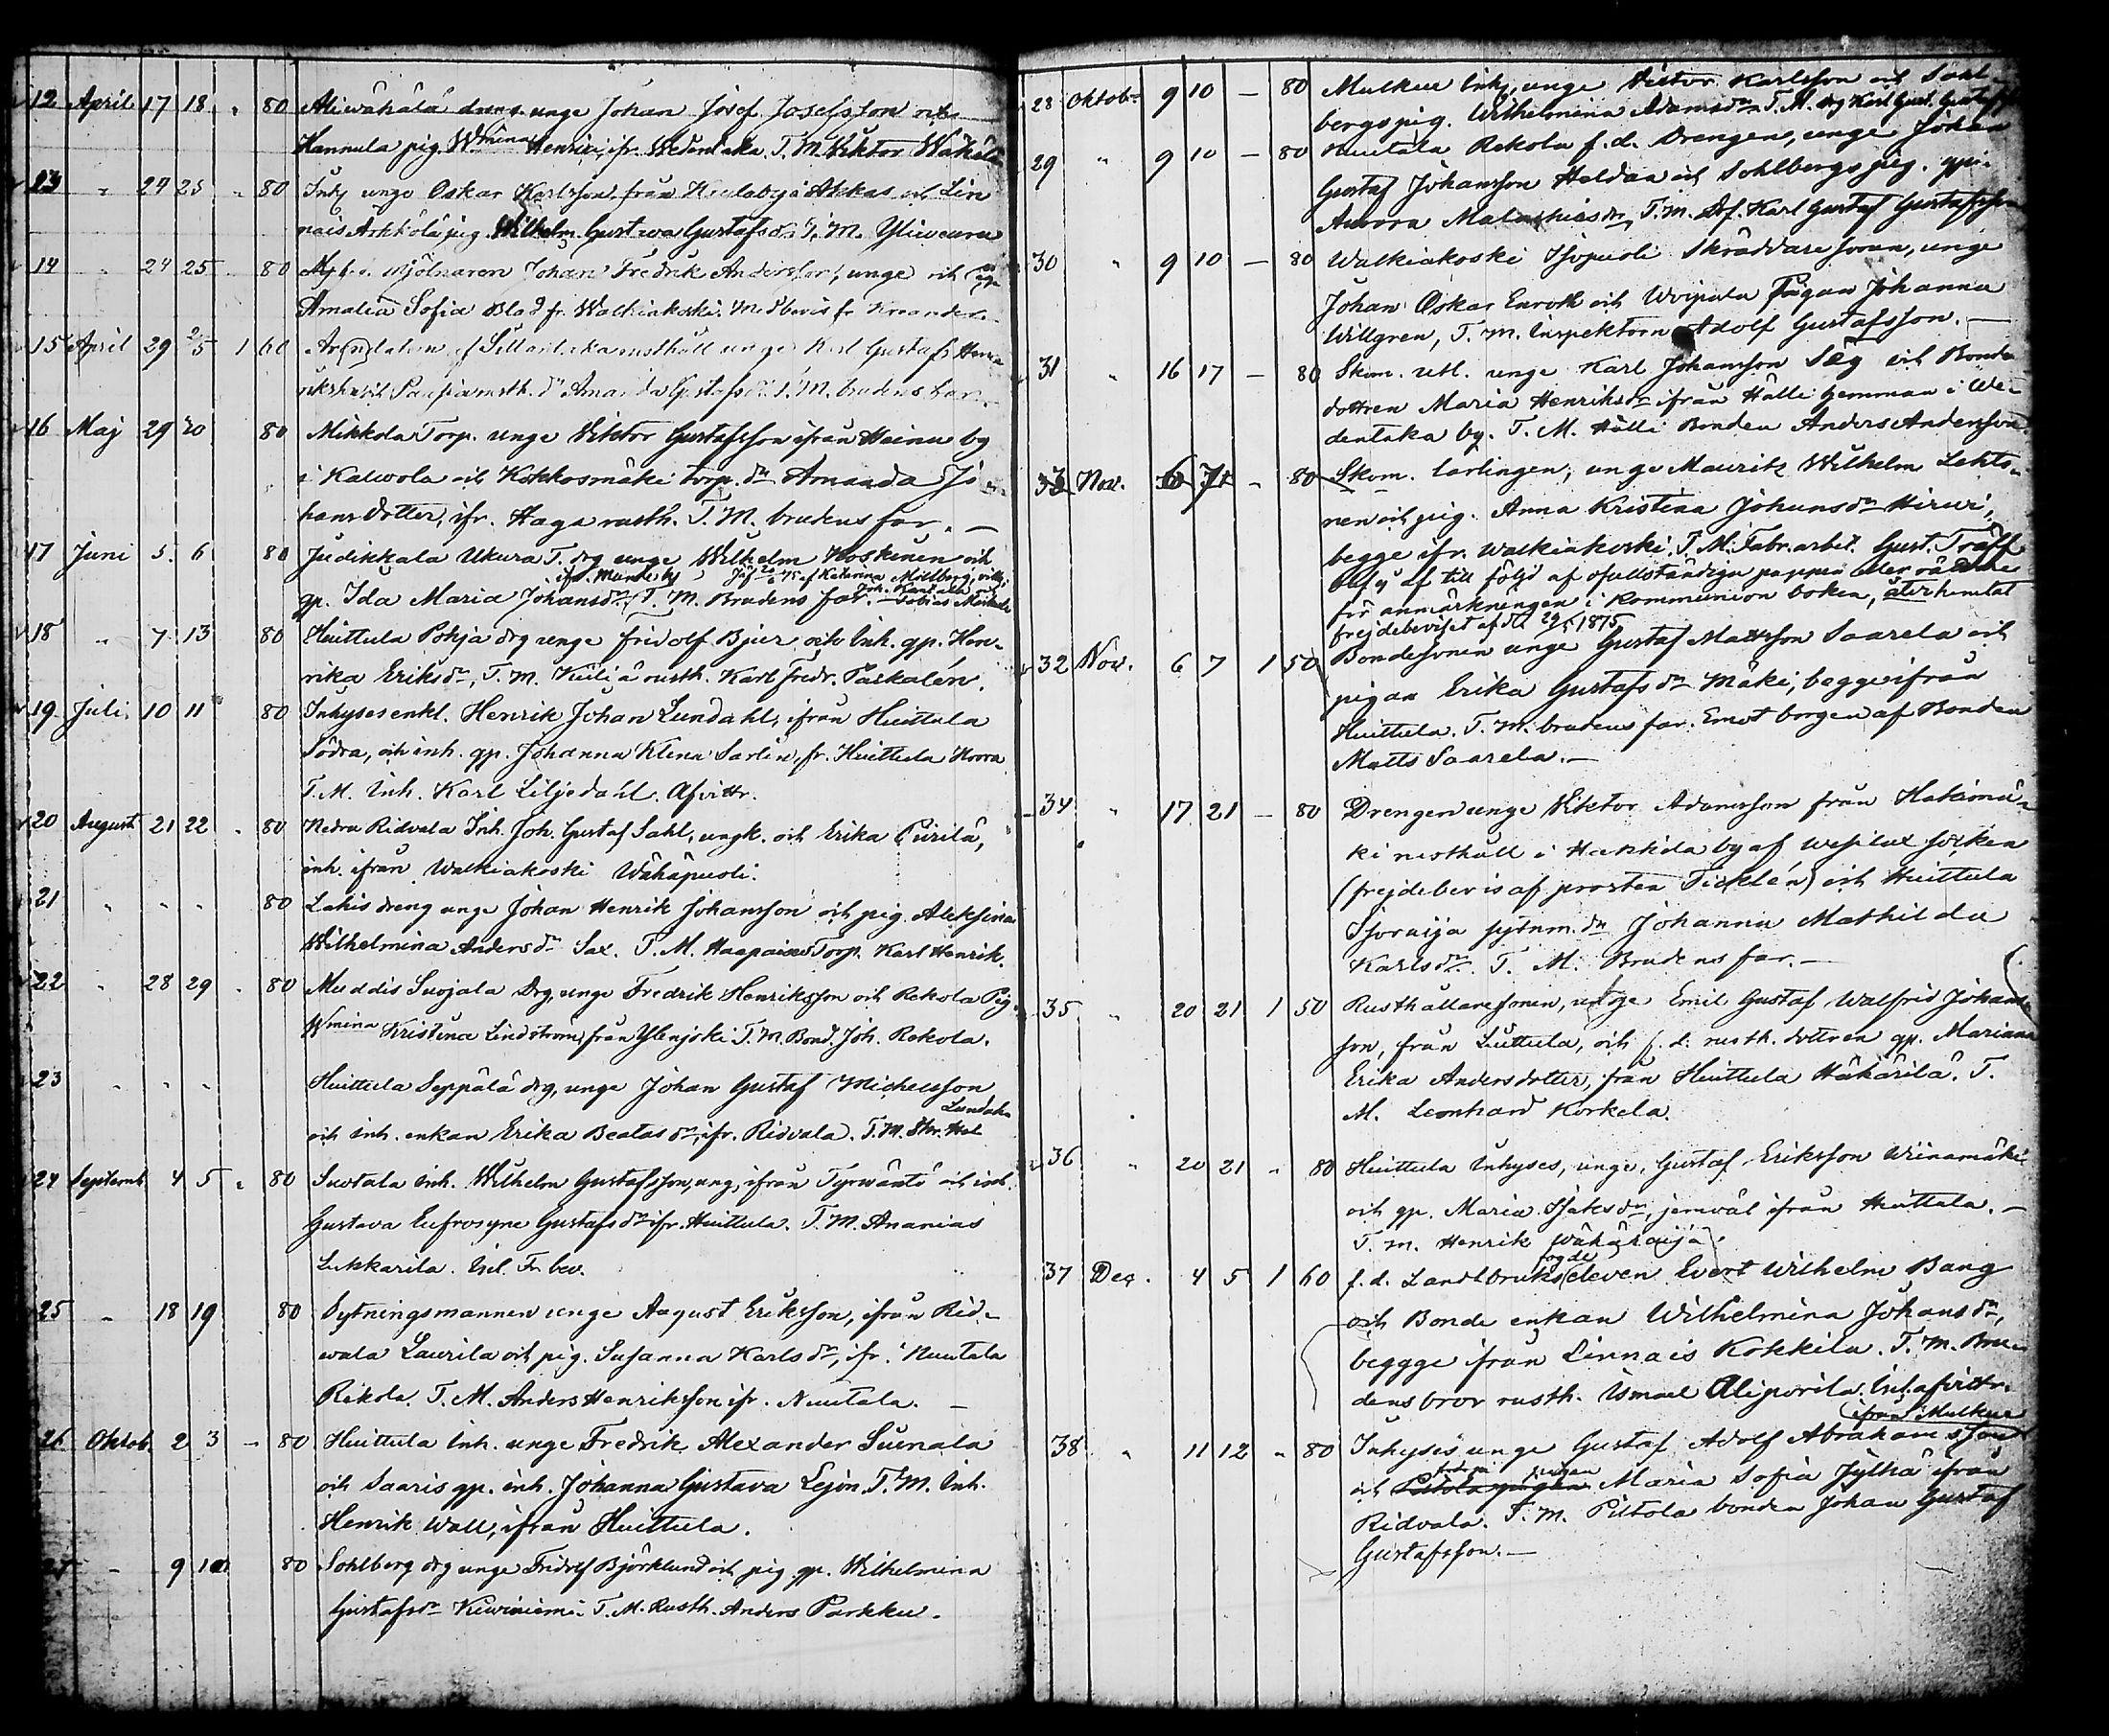 12 April 17 18 " 80 Aliwähälä dreng unge Johan Josef Josefsson och
Hannula pig. Wmina Henrici, ifr. Wedentaka. T. M. Viktor Wähälä
13 " 24 25 " 80 Inh. unge Oskar Karlsson från Akkas och Lin
nais pig. Wilhelm. Gustava Gustafsdr. T. M.
14 " 24 25 80 mjölnaren Johan Fredrik Andersson, unge och
Amalia Sofia Blad fr. Walkiakoski. Med bevis fr.
15 April 29 25 1 60 af rusthåll unge Karl Gustaf
och rusth. dr Amanda Gustafsdr. T. M. brudens far.
16 Maj 29 30 80 Mikkola Torp. unge Viktor Gustafsson ifrån Heinu by
i Kalwola och Kokkosmäki torp. dr Amanda Jo
hansdotter, ifr. Haga rusth. T. M. brudens far. —
17 Juni 5 6 80 Judikkala Ukura T. drg unge Wilhelm Koskinen och
af Katarina
gp. Ida Maria Johansdr. T. M. Brudens far.
18 " 7 13 80 Huittula Pohja drg unge Fridolf Bjur och Inh. gp. Hen-
rika Eriksdr, T. M. rusth. Karl Fredr.
19 Juli 10 11 80 Inhysesenkl. Henrik Johan Lundahl, ifrån Huittula
Södra, och inh. gp. Johanna Sarlin, fr. Huittula Norra
T. M. Inh. Karl Liljedahl. Afvittr.
20 August 21 22 " 80 Nedra Ridvala Inh. Joh. Gustaf Sahl, ungk. och Erika Purilä,
inh. ifrån Walkiakoski Wähäpuoli.
21 " " " 80 Lahis dreng unge Johan Henrik Johansson och pig. Aleksina
Wilhelmina Andersdr Sax. T. M. Torp. Karl Henrik.
22 " 28 29 " 80 Muddis Suojala Drg, unge Fredrik Henriksson och Rekola Pig.
Wmina Kristina Lindström, från T. M. Bond. Joh. Rekola.
23 " " " Huittula Seppälä drg, unge Johan Gustaf Michelsson
och inh. enkan Erika Beatasdr, ifr. Ridvala. T. M.
24 Septemb 4 5 " 80 Suotala inh. Wilhelm Gustafsson, ung, ifrån Tyrwäntö och inh.
Gustava Eufrosyne Gustafsdr ifr. Huittula. T. M. Ananias
Lekkarila. Fr. bev.
25 " 18 19 80 Sytningsmannen unge August Eriksson, ifrån Rid-
wala Laurila och pig. Susanna Karlsdr, ifr. Nuutala
Rekola. T. M. Anders Henriksson ifr. Nuutala. —
26 Oktob 2 3 — 80 Huittula Inh. unge Fredrik Alexander
och Saaris gp. inh. Johanna Gustava Lejon. T. M. Inh.
Henrik Wall, ifrån Huittula.
27 — 9 10 80 Sohlberg drg unge Fridolf Björklund och pig gp. Wilhelmina
Gustafsdr Kiwiniemi. T. M. Rusth. Anders Parkku.
28 Oktob. 9 10 — 80 Mulkue Inh., unge Victor Karlsson och Sohl-
bergs pig. Wilhelmina Adamsdr. T. M. drg Karl Gust.
29 " 9 10 — 80 Nuutala Rekola f. d. Drengen, unge Johan
Gustaf Johansson Heldan och Sohlbergs pig. gp.
Aurora Malachiasdr, T. M. Karl Gustaf Gustafsson
30 " 9 10 — 80 Walkiakoski Isopuoli Skräddare sonen, unge
Johan Oskar Enroth och Pigan Johanna
Willgren, T. M. Inspektorn Adolf Gustafsson. —
31 " 16 17 — 80 Skom. unge Karl Johansson Säg och Bonde
dottren Maria Henriksdr ifrån Hälli hemman i We-
dentaka by. T. M. Hälli Bonden Anders Andersson.
33 Nov. 6 7 — 80 Skom. lärlingen, unge Mauritz Wilhelm Lehto-
nen och pig. Anna Kristina Johansdr Hirwi,
begge ifr. Walkiakoski. T. M. Fabr. arbet. Gust. Träff
af till följd af ofullständiga papper
för anmärkningen i kommunion boken, återhemtat
frejdebeviset af d. 29/ 1875.
32 Nov. 6 7 1 50 Bondesonen unge Gustaf Mattsson Saarela och
pigan Erika Gustafsdr Mäki, begge ifrån
Huittula. T. M. brudens far. Emot borgen af Bonden
Matts Saarela. —
34 " 17 21 — 80 Drengen unge Viktor Adamsson från Hakimä-
ki rusthåll i Hakkila by af Wesilax socken
(frejdebevis af prosten Ticklén) och Huittula
sytnm. dr Johanna Mathilda
Karlsdr. T. M. Brudens far. —
35 " 20 21 1 50 Rusthållaresonen, unge Emil Gustaf Walfrid Johans-
son, från Luttula, och f. d. rusth. dottren gp. Mariana
Erika Andersdotter, från Huittula Häkärilä. T.
M. Leonhard Korkela.
36 " 20 21 " 80 Huittula Inhyses, unge, Gustaf Eriksson Wiinamäki
och gp. Maria Isaksdr, jemväl ifrån Huittula. —
T. M. Henrik
fogde
37 Dec. 4 5 1 60 f. d. Landtbruks eleven Evert Wilhelm Bang
och Bonde enkan Wilhelmina Johansdr,
beggge ifrån Linnais Kokkila. T. M. Bru-
dens bror rusth. Ismael Aliporila. afvittr.
ifrån Mulkue
38 " 11 12 " 80 Inhyses unge Gustaf Adolf Abrahamsson
och pigan Maria Sofia Jylhä ifrån
Ridvala. T. M. Pitola bonden Johan Gustaf
Gustafsson. —